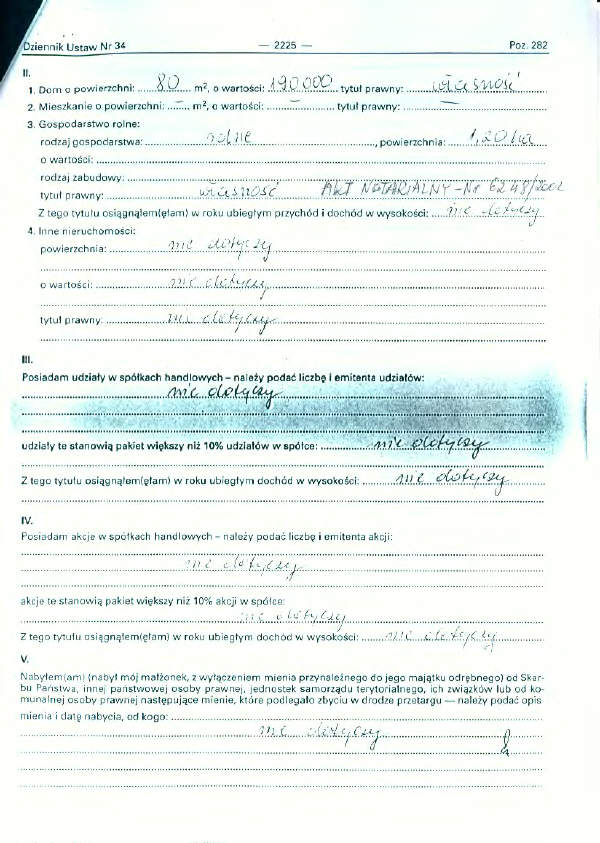 Dziennik Ustaw Nr 34 — 2225 — Poz. 282
II.
1. Dom o powierzchni: 80 m², o wartości: 190000 tytuł prawny: własność
2. Mieszkanie o powierzchni: — m², o wartości: — tytuł prawny: —
3. Gospodarstwo rolne:
rodzaj gospodarstwa: rolne, powierzchnia: 1,20 ha
o wartości:
rodzaj zabudowy:
tytuł prawny: własność AKT NOTARIALNY - Nr 6248/2002
Z tego tytułu osiągnąłem(ęłam) w roku ubiegłym przychód i dochód w wysokości: nie dotyczy
4. Inne nieruchomości:
powierzchnia: nie dotyczy
o wartości: nie dotyczy
tytuł prawny: nie dotyczy
III.
Posiadam udziały w spółkach handlowych – należy podać liczbę i emitenta udziałów:
nie dotyczy
udziały te stanowią pakiet większy niż 10% udziałów w spółce: nie dotyczy
Z tego tytułu osiągnąłem(ęłam) w roku ubiegłym dochód w wysokości: nie dotyczy
IV.
Posiadam akcje w spółkach handlowych – należy podać liczbę i emitenta akcji:
nie dotyczy
akcje te stanowią pakiet większy niż 10% akcji w spółce:
nie dotyczy
Z tego tytułu osiągnąłem(ęłam) w roku ubiegłym dochód w wysokości: nie dotyczy
V.
Nabyłem(am) (nabył mój małżonek, z wyłączeniem mienia przynależnego do jego majątku odrębnego) od Skar-
bu Państwa, innej państwowej osoby prawnej, jednostek samorządu terytorialnego, ich związków lub od ko-
munalnej osoby prawnej następujące mienie, które podlegało zbyciu w drodze przetargu — należy podać opis
mienia i datę nabycia, od kogo:
nie dotyczy